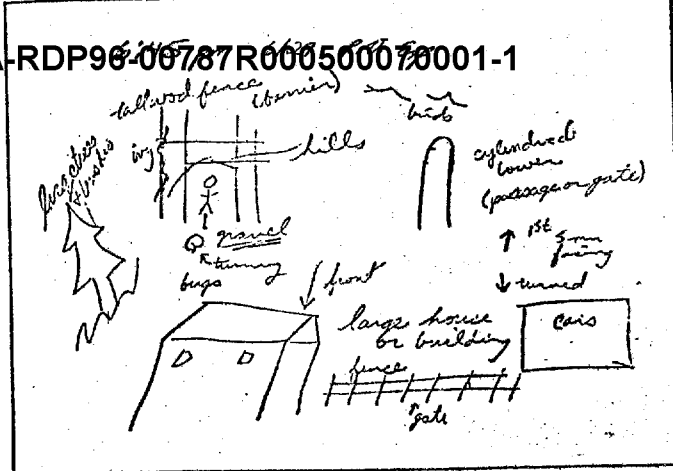 -RDP96-00787R000500070001-1
tall wood fence (barrier)
birds
ivy
hills
cylindrical
tower
(passage or gate)
large trees
& bushes
gravel
turning
bugs
↑ 1st 5 min
facing
↓ turned
front
large house
or building
cars
fence
gate